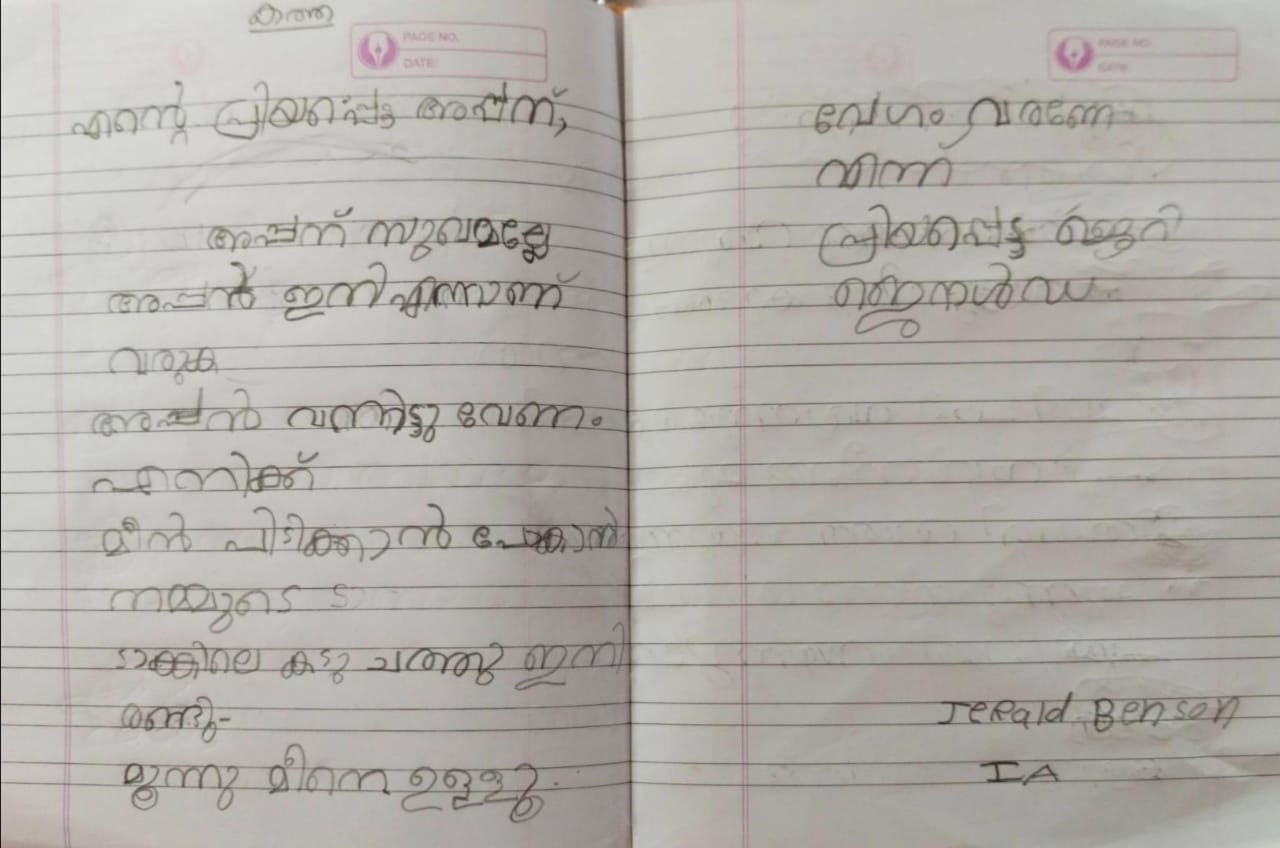 കത്ത
PAGE NO.
DATE:
എന്റെ പ്രിയപ്പെട്ട അപ്പന്,
അപ്പന് സുഖമല്ലേ
അപ്പൻ ഇനി എന്നാണ്
വരുക
അപ്പൻ വന്നിട്ടു വേണം
എനിക്ക്
മീൻ പിടിക്കാൻ പോകാൻ
നമ്മുടെ ട
ടാങ്കിലെ കടു ചത്തു ഇനി
രണ്ടു-
മൂന്നു മീനെ ഉള്ളു.
PAGE NO.
DATE:
വേഗം വരണേ
എന്ന്
പ്രിയപ്പെട്ട
Jerald Benson
I A